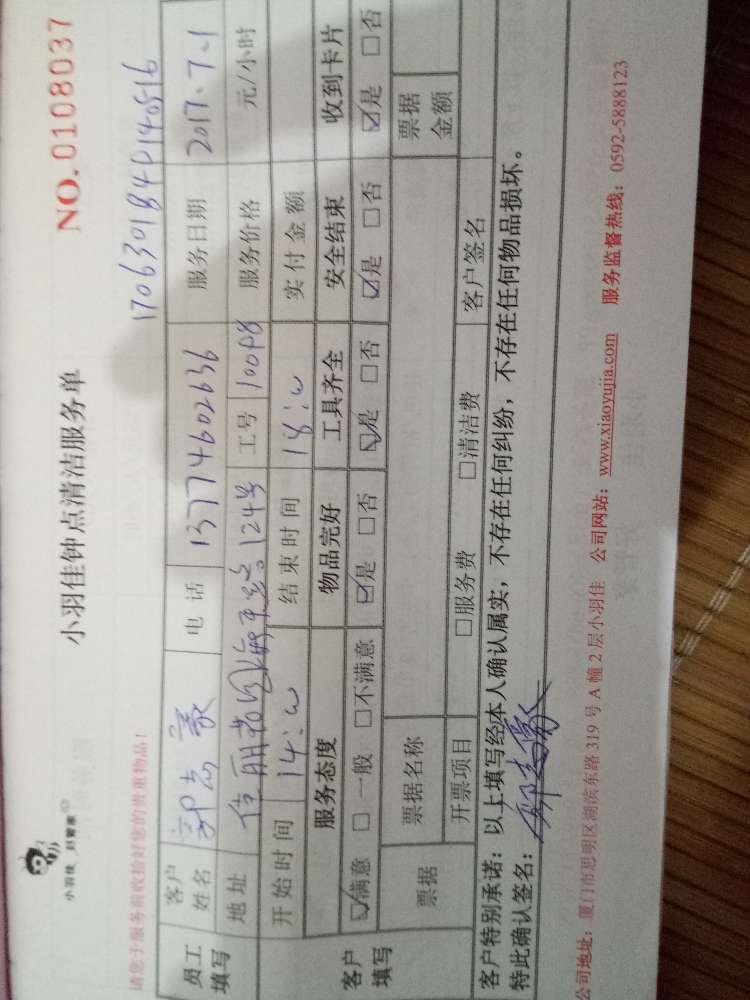 小羽佳 好管家
小羽佳钟点清洁服务单
NO. 0108037
请您于服务前收拾好您的贵重物品!
员工填写
客户姓名 郭志豪 电话 13774602636 服务日期 2017.7.1
地址 124号 工号 10098 服务价格 元/小时
开始时间 14:00 结束时间 18:00 实付金额
客户填写
服务态度 物品完好 工具齐全 安全结束 收到卡片
☑满意 □一般 □不满意 ☑是 □否 ☑是 □否 ☑是 □否 ☑是 □否
票据 票据名称 票据金额
开票项目 □服务费 □清洁费 客户签名
客户特别承诺:以上填写经本人确认属实,不存在任何纠纷,不存在任何物品损坏。
特此确认签名:郭志豪
公司地址:厦门市思明区湖滨东路 319 号 A 幢 2 层小羽佳 公司网站:www.xiaoyujia.com 服务监督热线:0592-5888123